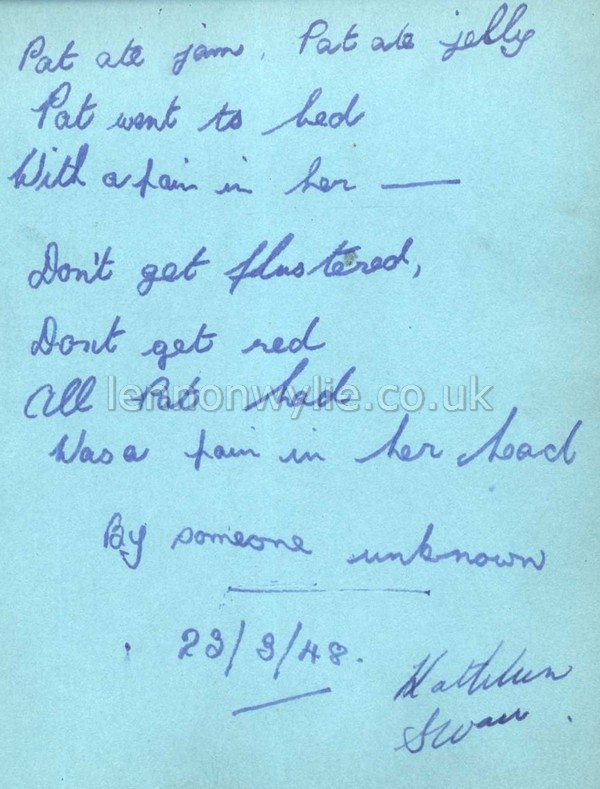 Pat ate jam, Pat ate jelly
Pat went to bed
With a pain in her —
Don't get flustered,
Dont get red
All Pat had
lennonwylie.co.uk
Was a pain in her head
By someone unknown
23/3/48.
Kathleen
Swan.